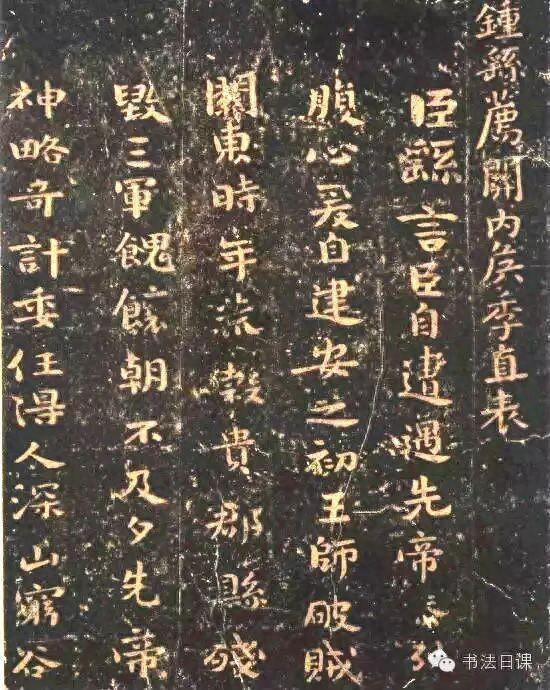 鍾繇薦關内侯季直表
臣繇言臣自遭遇先帝忝列
腹心爰自建安之初王師破賊
關東時年荒穀貴郡縣殘
毀三軍餽饟朝不及夕先帝
神略奇計委任得人深山窮谷
书法日课